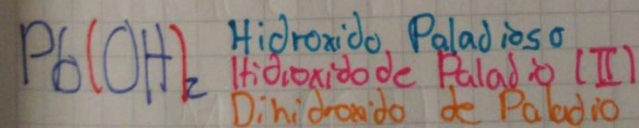 Pb(OH)2 Hidroxido Paladioso
Hidroxido de Paladio (II)
Dihidroxido de Paladio